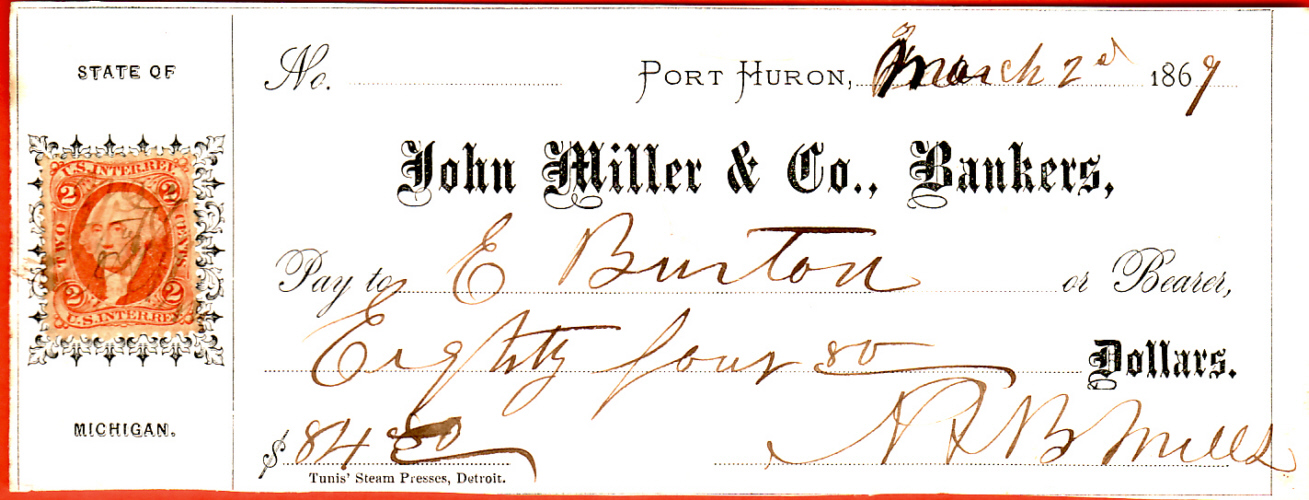 STATE OF
U.S. INTER. REV.
2 2
TWO CENTS
2 2
U.S. INTER. REV.
MICHIGAN.
No. PORT HURON, March 2nd 1869
John Miller & Co., Bankers,
Pay to E Burton or Bearer,
Eighty four 80 Dollars.
$ 84 80 Mills
Tunis' Steam Presses, Detroit.